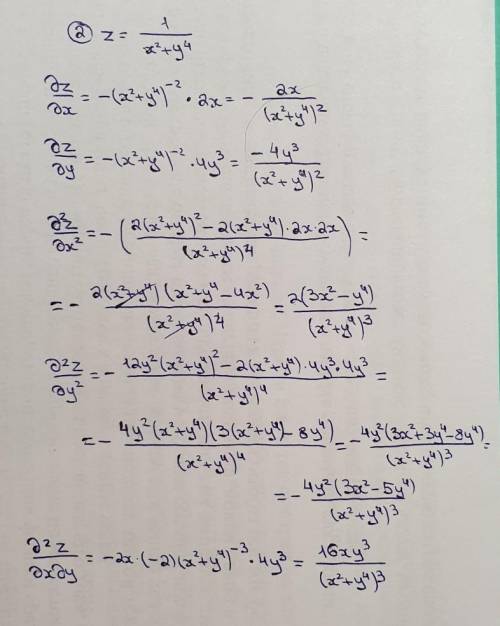 ② z = 1/(x²+y⁴)
∂z/∂x = -(x²+y⁴)⁻² · 2x = - 2x/(x²+y⁴)²
∂z/∂y = -(x²+y⁴)⁻² · 4y³ = -4y³/(x²+y⁴)²
∂²z/∂x² = -( (2(x²+y⁴)² - 2(x²+y⁴)·2x·2x)/(x²+y⁴)⁴ ) =
= - 2(x²+y⁴)(x²+y⁴-4x²)/(x²+y⁴)⁴ = 2(3x²-y⁴)/(x²+y⁴)³
∂²z/∂y² = - (12y²(x²+y⁴)² - 2(x²+y⁴)·4y³·4y³)/(x²+y⁴)⁴ =
= - 4y²(x²+y⁴)(3(x²+y⁴)-8y⁴)/(x²+y⁴)⁴ = - 4y²(3x²+3y⁴-8y⁴)/(x²+y⁴)³ =
= - 4y²(3x²-5y⁴)/(x²+y⁴)³
∂²z/∂x∂y = -2x·(-2)(x²+y⁴)⁻³ · 4y³ = 16xy³/(x²+y⁴)³